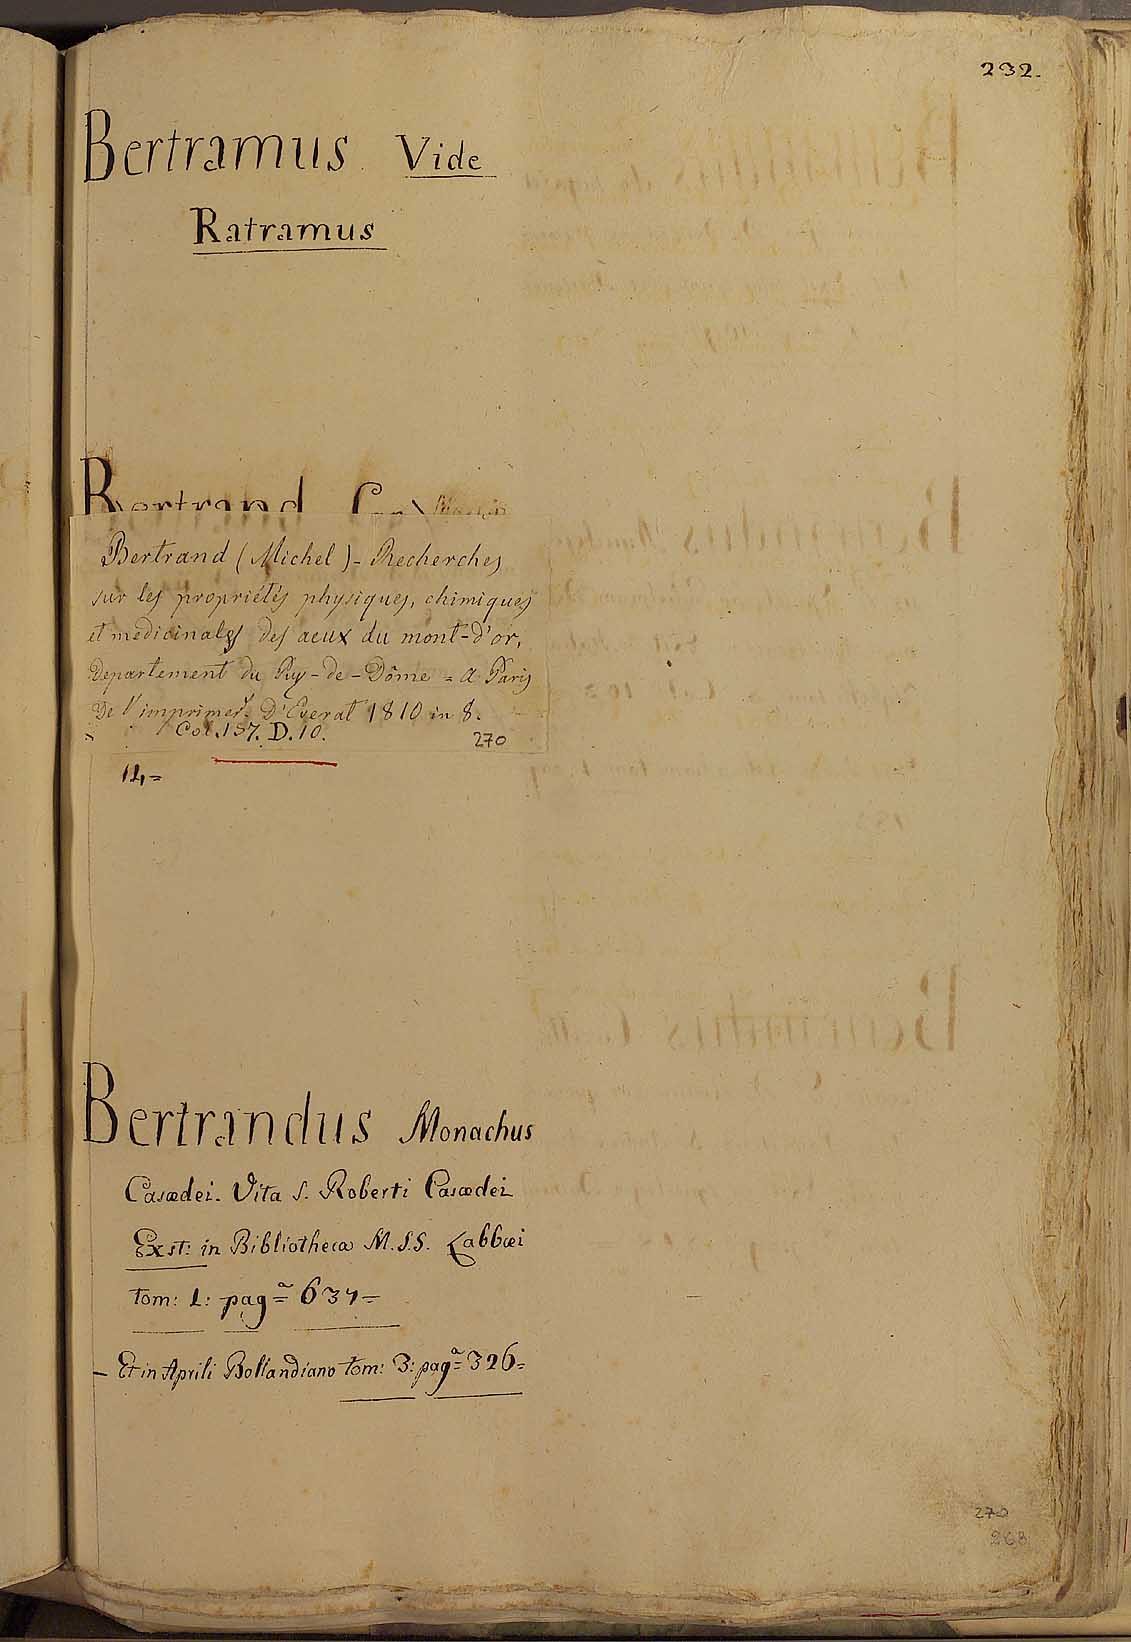 232.
Bertramus Vide
Ratramus
Bertrand
Bertrand (Michel) - Recherches
sur les propriétés physiques, chimiques
et medicinales des aeux du mont-d'or,
Departement du Puy-de-Dôme = a Paris
De l'imprimer. D'Everat 1810 in 8.
Col. 157. D. 10.
270
14=
Bertrandus Monachus
Casædei. Vita S. Roberti Casædei
Exst: in Bibliotheca M.S.S. Labbæi
tom: 1: pagª= 637=
- Et in Aprili Bollandiano tom: 3: pagª= 326=
270
268